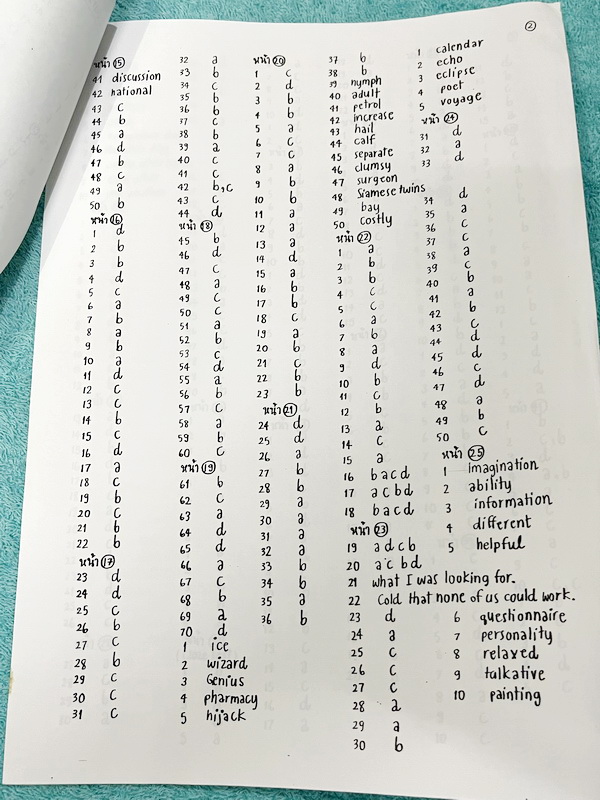 ②
หน้า ⑮
41 discussion
42 national
43 c
44 b
45 a
46 d
47 b
48 c
49 a
50 b
หน้า ⑯
1 d
2 b
3 b
4 d
5 c
6 a
7 b
8 a
9 b
10 a
11 d
12 c
13 c
14 b
15 c
16 d
17 a
18 c
19 b
20 c
21 b
22 b
หน้า ⑰
23 d
24 d
25 c
26 b
27 c
28 b
29 c
30 c
31 c
32 a
33 b
34 c
35 b
36 b
37 c
38 b
39 a
40 c
41 c
42 b,c
43 c
44 d
หน้า ⑱
45 b
46 d
47 c
48 a
49 c
50 c
51 a
52 b
53 c
54 d
55 a
56 b
57 c
58 a
59 b
60 c
หน้า ⑲
61 b
62 c
63 a
64 d
65 d
66 a
67 c
68 b
69 a
70 d
1 ice
2 wizard
3 Genius
4 pharmacy
5 hijack
หน้า ⑳
1 c
2 d
3 b
4 b
5 a
6 c
7 c
8 a
9 b
10 b
11 a
12 a
13 a
14 d
15 a
16 b
17 b
18 c
19 a
20 b
21 c
22 b
23 b
หน้า ㉑
24 d
25 d
26 a
27 b
28 b
29 a
30 a
31 a
32 a
33 b
34 b
35 a
36 b
37 b
38 b
39 nymph
40 adult
41 petrol
42 increase
43 hail
44 calf
45 separate
46 clumsy
47 surgeon
48 Siamese twins
49 bay
50 costly
หน้า ㉒
1 a
2 b
3 b
4 c
5 c
6 a
7 b
8 a
9 d
10 b
11 c
12 b
13 a
14 c
15 a
16 b a c d
17 a c b d
18 b a c d
หน้า ㉓
19 a d c b
20 a c b d
21 what I was looking for.
22 Cold that none of us could work.
23 d
24 a
25 c
26 c
27 c
28 a
29 a
30 b
1 calendar
2 echo
3 eclipse
4 poet
5 voyage
หน้า ㉔
31 d
32 a
33 d
34 d
35 a
36 c
37 c
38 a
39 c
40 b
41 a
42 b
43 c
44 d
45 d
46 c
47 d
48 a
49 b
50 c
หน้า ㉕
1 Imagination
2 ability
3 information
4 different
5 helpful
6 questionnaire
7 personality
8 relaxed
9 talkative
10 painting